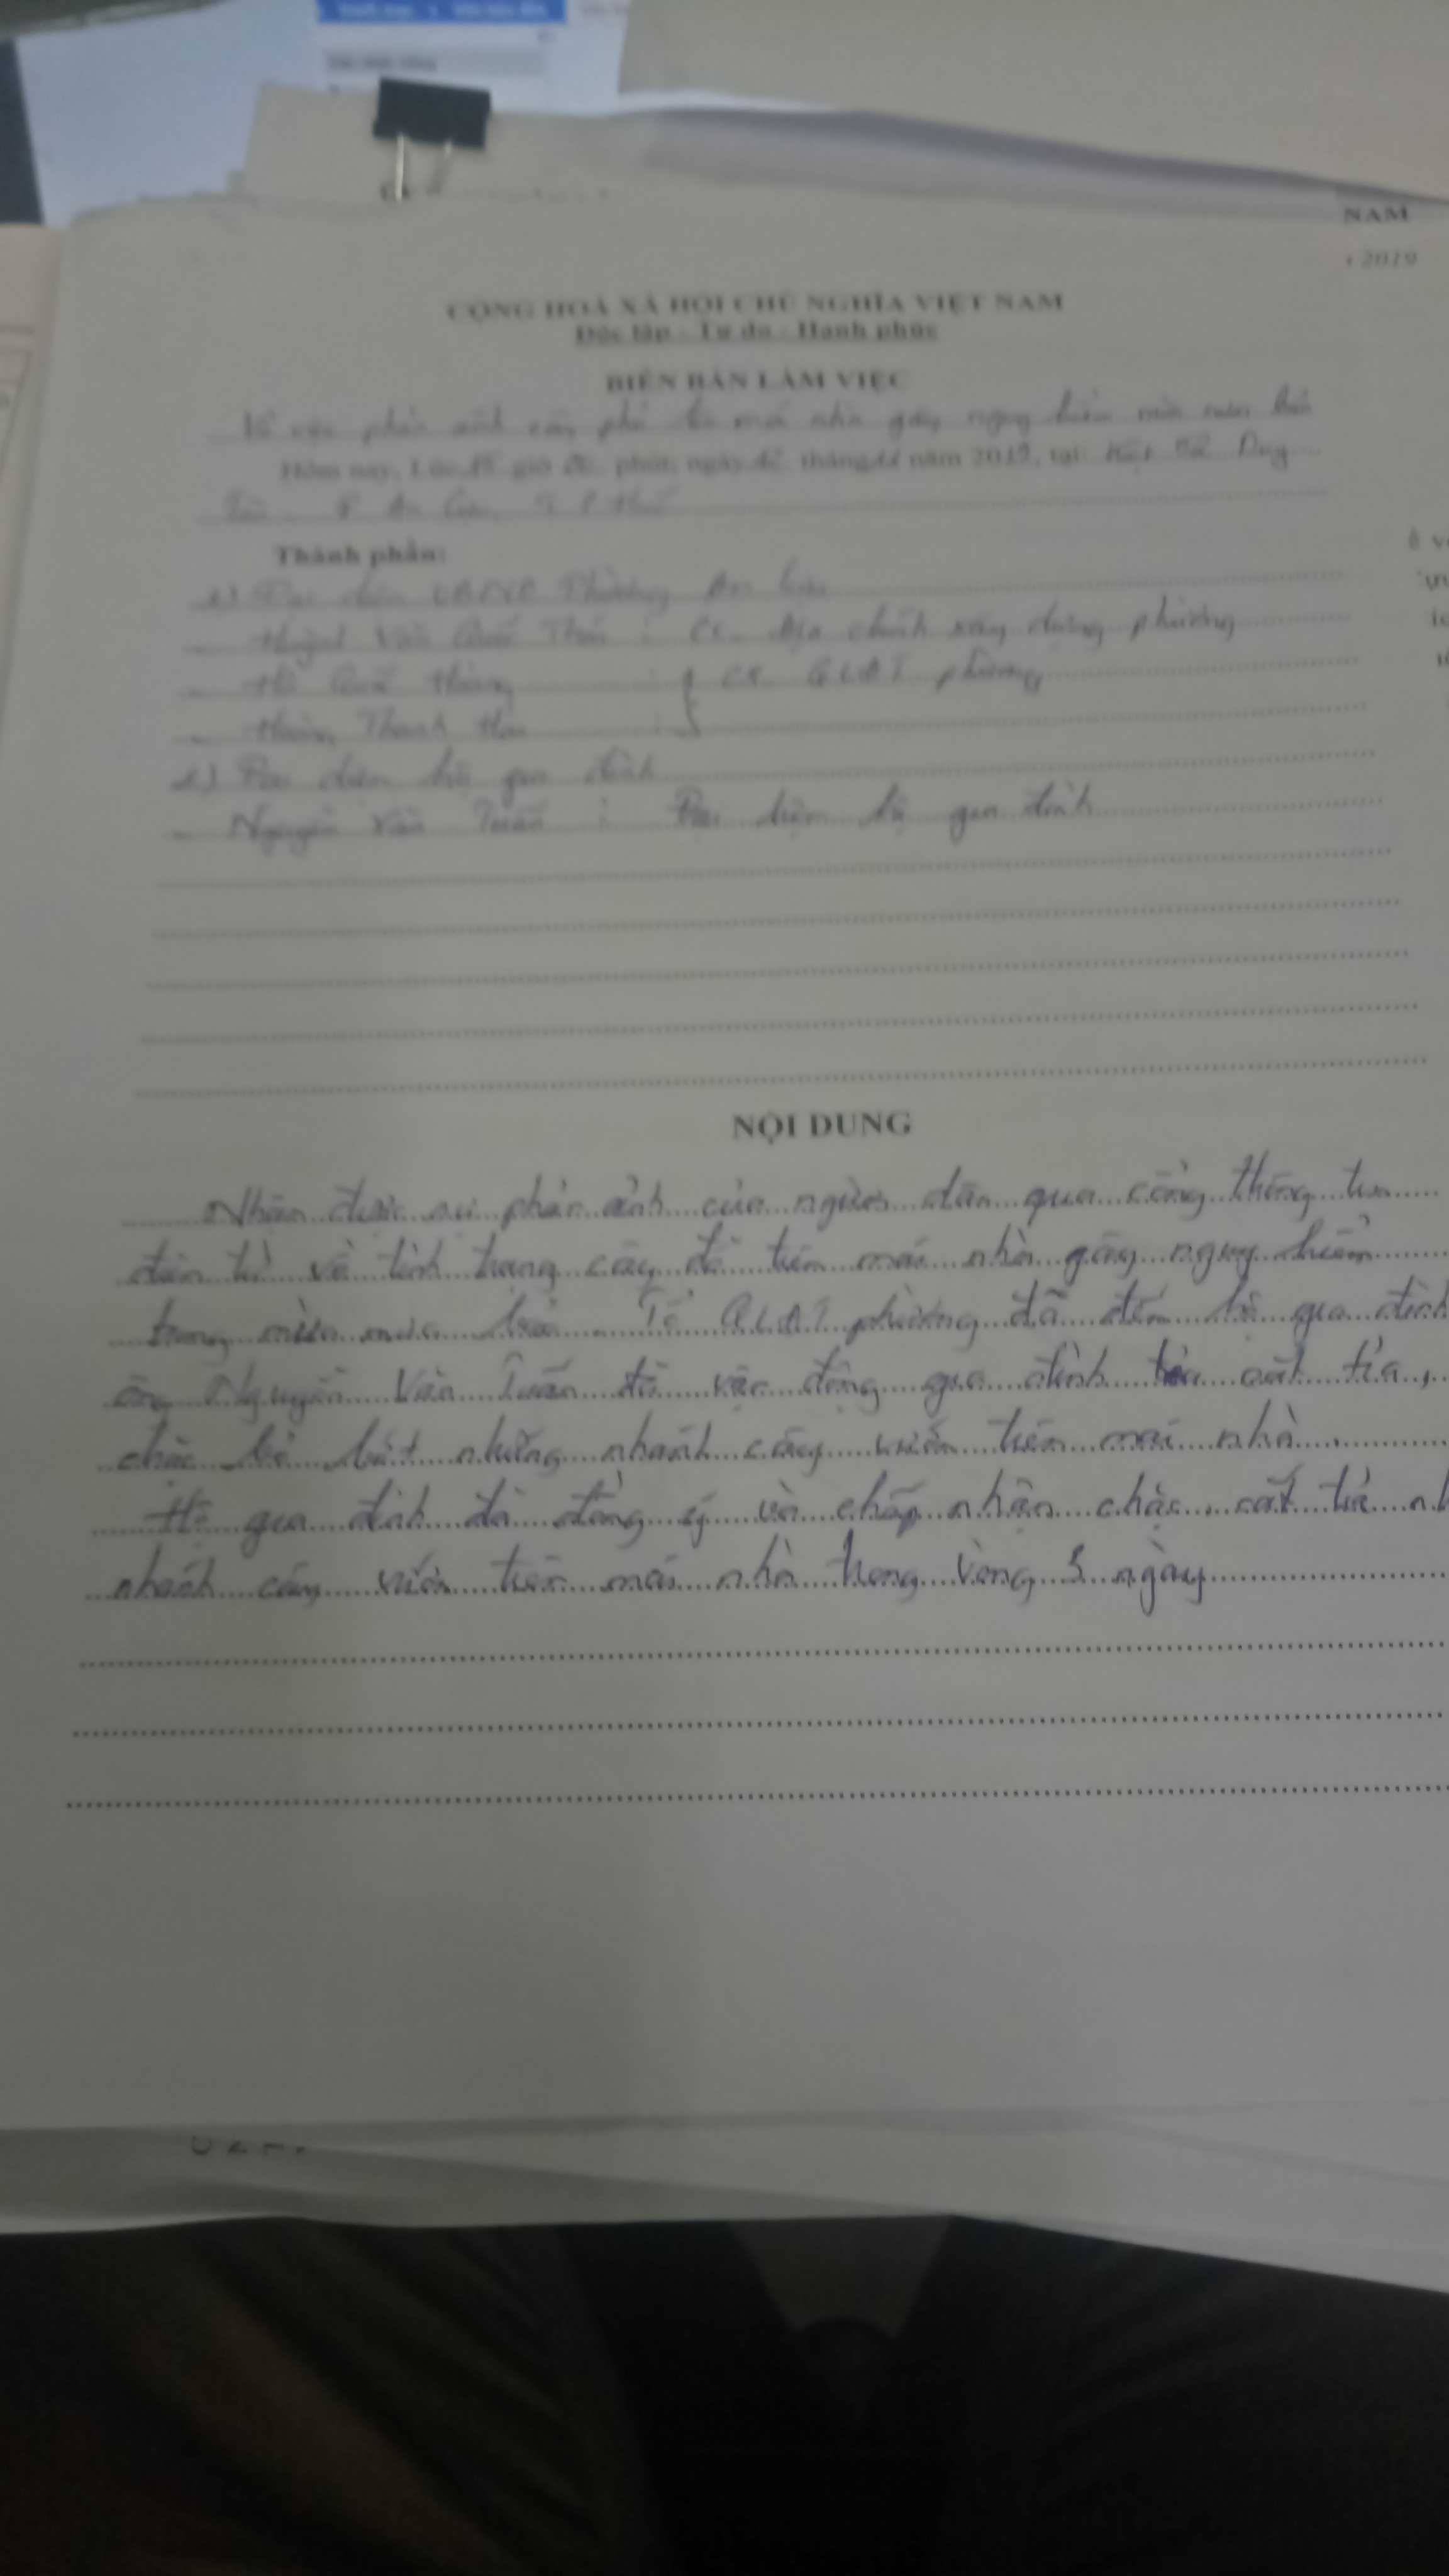 NAM
2019
CỘNG HOÀ XÃ HỘI CHỦ NGHĨA VIỆT NAM
Độc lập - Tự do - Hạnh phúc
BIÊN BẢN LÀM VIỆC
Về việc phản ánh cây phủ mái nhà gây nguy hiểm mùa mưa bão
Hôm nay, Lúc giờ phút, ngày tháng năm 2019, tại Kiệt Duy
Tân P An Cựu, TP Huế
Thành phần:
1) Đại diện UBND Phường An Cựu
- Huỳnh Văn Quốc Thái : CC. Địa chính xây dựng phường
- Hồ Quốc Hoàng : CC. QLĐT phường
- Hoàng Thanh :
2) Đại diện hộ gia đình
- Nguyễn Văn Tuấn : Đại diện hộ gia đình
NỘI DUNG
Nhận được sự phản ánh của người dân qua cổng thông tin
điện tử về tình trạng cây đè trên mái nhà gây nguy hiểm
trong mùa mưa bão. Tổ QLĐT phường đã đến hộ gia đình
ông Nguyễn Văn Tuấn để vận động gia đình cắt tỉa,
chặc bỏ bớt những nhánh cây vướn trên mái nhà.
Hộ gia đình đã đồng ý và chấp nhận chặc, cắt tỉa
nhánh cây vướn trên mái nhà trong vòng 5 ngày